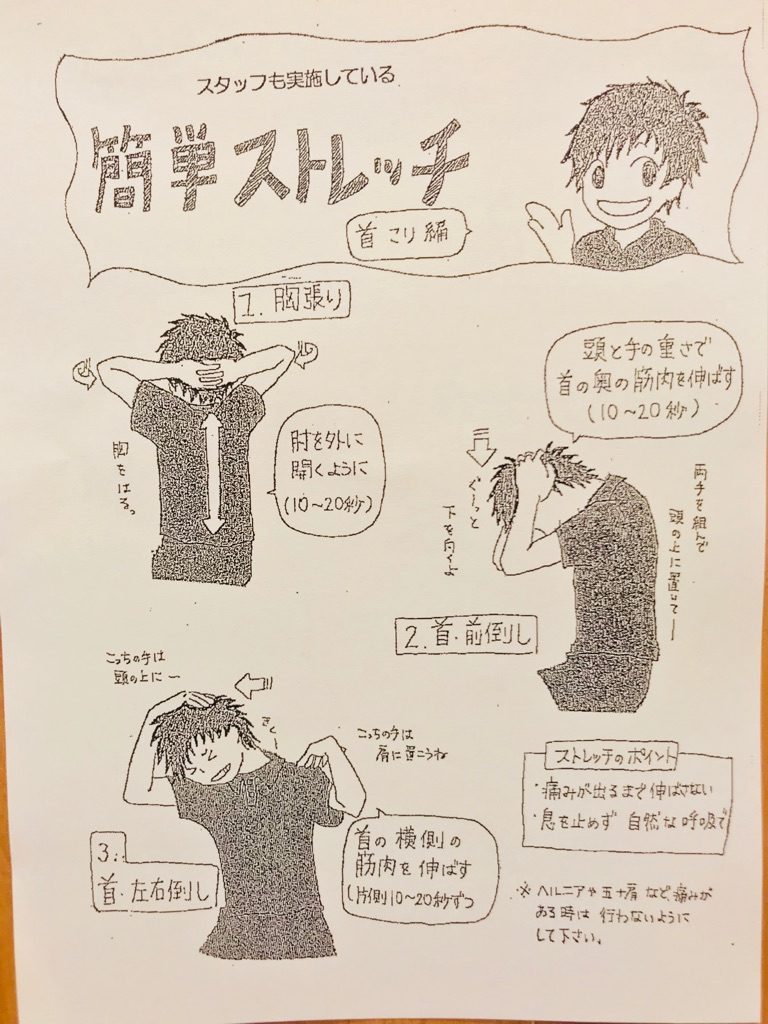 スタッフも実施している
簡単ストレッチ
首こり編
1. 胸張り
肘を外に
開くように
(10〜20秒)
胸をはる。
頭と手の重さで
首の奥の筋肉を伸ばす
(10〜20秒)
両手を組んで
頭の上に置いてー
ぐーっと
下を向くよ
2. 首・前倒し
こっちの手は
頭の上にー
こっちの手は
肩に置こうね
3.
首・左右倒し
首の横側の
筋肉を伸ばす
(片側10〜20秒ずつ
ストレッチのポイント
・痛みが出るまで伸ばさない
・息を止めず 自然な呼吸で
※ ヘルニアや五十肩など、痛みが
ある時は 行わないように
して下さい。